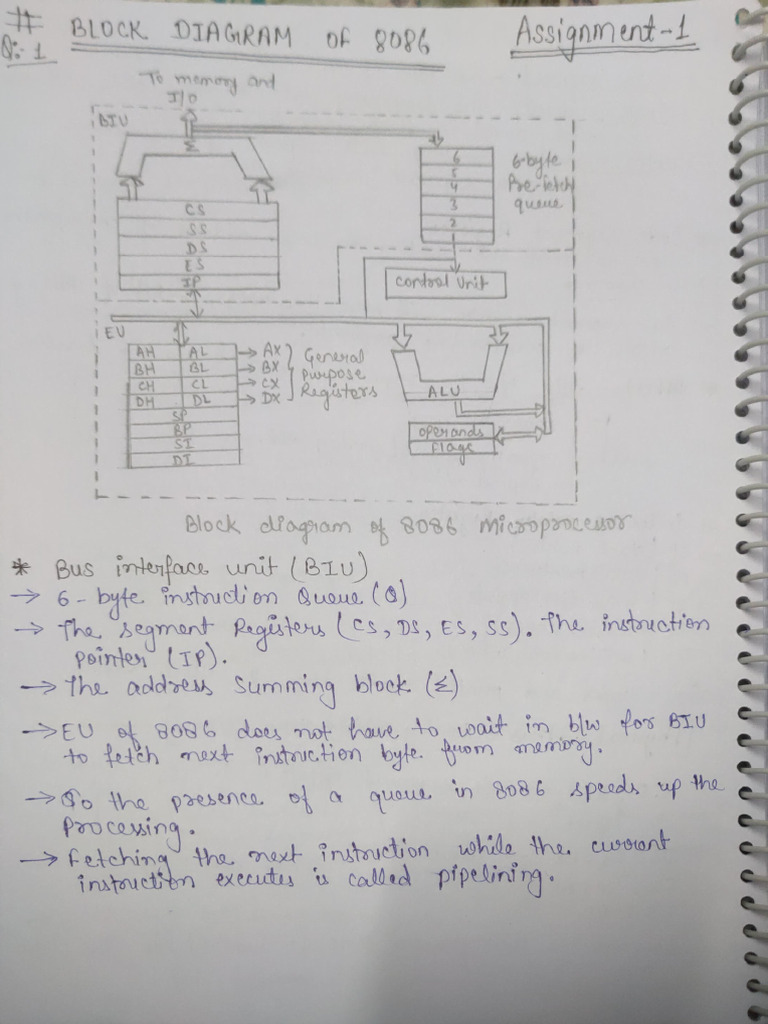 #
Q:- 1
BLOCK DIAGRAM OF 8086
Assignment-1
To memory and
I/O
BIU
Σ
CS
SS
DS
ES
IP
6
5
4
3
2
1
6-byte
Pre-fetch
queue
Control Unit
EU
AH AL → AX
BH BL → BX
CH CL → CX
DH DL → DX
General
Purpose
Registers
SP
BP
SI
DI
ALU
operands
Flags
Block diagram of 8086 Microprocessor
* Bus interface unit (BIU)
→ 6-byte instruction Queue (Q)
→ The segment Registers (CS, DS, ES, SS). The instruction
pointer (IP).
→ The address summing block (Σ)
→ EU of 8086 does not have to wait in b/w for BIU
to fetch next instruction byte from memory.
→ So the presence of a queue in 8086 speeds up the
Processing.
→ Fetching the next instruction while the current
instruction executes is called pipelining.